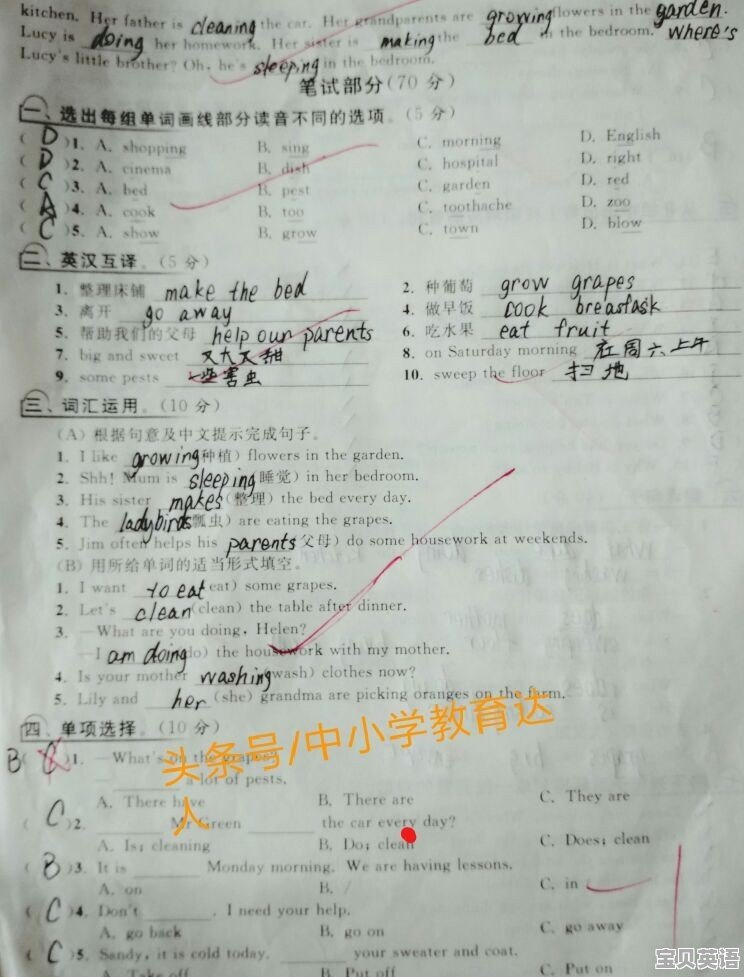 kitchen. Her father is cleaning the car. Her grandparents are growing flowers in the garden.
Lucy is doing her homework. Her sister is making the bed in the bedroom. Where's
Lucy's little brother? Oh, he's sleeping in the bedroom.
笔试部分(70 分)
一、选出每组单词画线部分读音不同的选项。(5 分)
( D )1. A. shopping B. sing C. morning D. English
( D )2. A. cinema B. dish C. hospital D. right
( C )3. A. bed B. pest C. garden D. red
( A )4. A. cook B. too C. toothache D. zoo
( C )5. A. show B. grow C. town D. blow
二、英汉互译。(5 分)
1. 整理床铺 make the bed 2. 种葡萄 grow grapes
3. 离开 go away 4. 做早饭 cook breasfask
5. 帮助我们的父母 help our parents 6. 吃水果 eat fruit
7. big and sweet 又大又甜 8. on Saturday morning 在周六上午
9. some pests 一些害虫 10. sweep the floor 扫地
三、词汇运用。(10 分)
(A) 根据句意及中文提示完成句子。
1. I like growing(种植) flowers in the garden.
2. Shh! Mum is sleeping(睡觉) in her bedroom.
3. His sister makes(整理) the bed every day.
4. The ladybirds(瓢虫) are eating the grapes.
5. Jim often helps his parents(父母) do some housework at weekends.
(B) 用所给单词的适当形式填空。
1. I want to eat(eat) some grapes.
2. Let's clean(clean) the table after dinner.
3. —What are you doing, Helen?
—I am doing(do) the housework with my mother.
4. Is your mother washing(wash) clothes now?
5. Lily and her (she) grandma are picking oranges on the farm.
四、单项选择。(10 分)
B( C )1. —What's on the grapes?
—____ a lot of pests.
A. There have B. There are C. They are
( C )2. ____ Mr Green ____ the car every day?
A. Is; cleaning B. Do; clean C. Does; clean
( B )3. It is ____ Monday morning. We are having lessons.
A. on B. / C. in
( C )4. Don't ____. I need your help.
A. go back B. go on C. go away
( C )5. Sandy, it is cold today. ____ your sweater and coat.
A. Take off B. Put off C. Put on
头条号/中小学教育达
人
宝贝英语